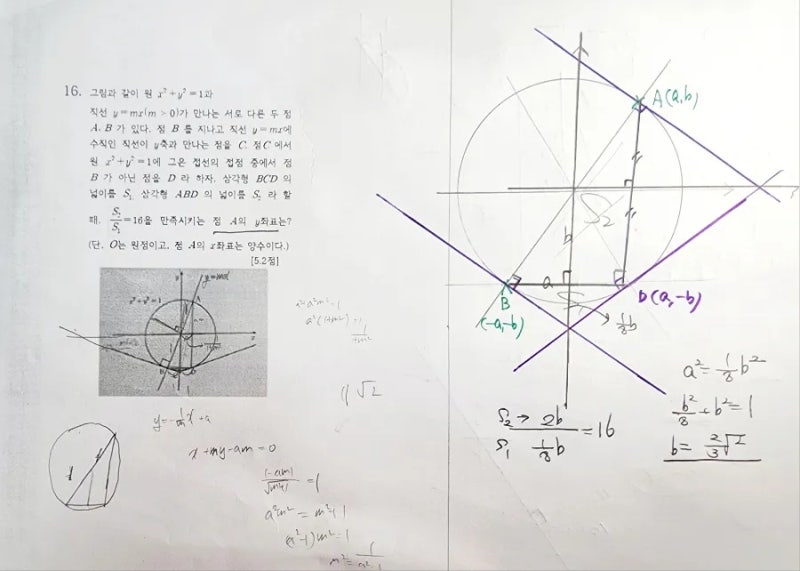 16. 그림과 같이 원 x²+y²=1과
직선 y=mx(m>0)가 만나는 서로 다른 두 점
A, B가 있다. 점 B를 지나고 직선 y=mx에
수직인 직선이 y축과 만나는 점을 C, 점 C에서
원 x²+y²=1에 그은 접선의 접점 중에서 점
B가 아닌 점을 D라 하자. 삼각형 BCD의
넓이를 S₁, 삼각형 ABD의 넓이를 S₂라 할
때, S₂/S₁=16을 만족시키는 점 A의 y좌표는?
(단, O는 원점이고, 점 A의 x좌표는 양수이다.)
[5.2점]
x²+y²=1
y=mx
A
y=-1/m x+a
x+my-am=0
|-am|/√(m²+1)=1
a²m²=m²+1
(a²-1)m²=1
m²=1/(a²-1)
√2
A(a,b)
S₂
b
a
B
(-a,-b)
D(a,-b)
1/8b
S₂→2b
S₁ 1/8b
=16
a²=1/8b²
b²/8+b²=1
b=2/3√2